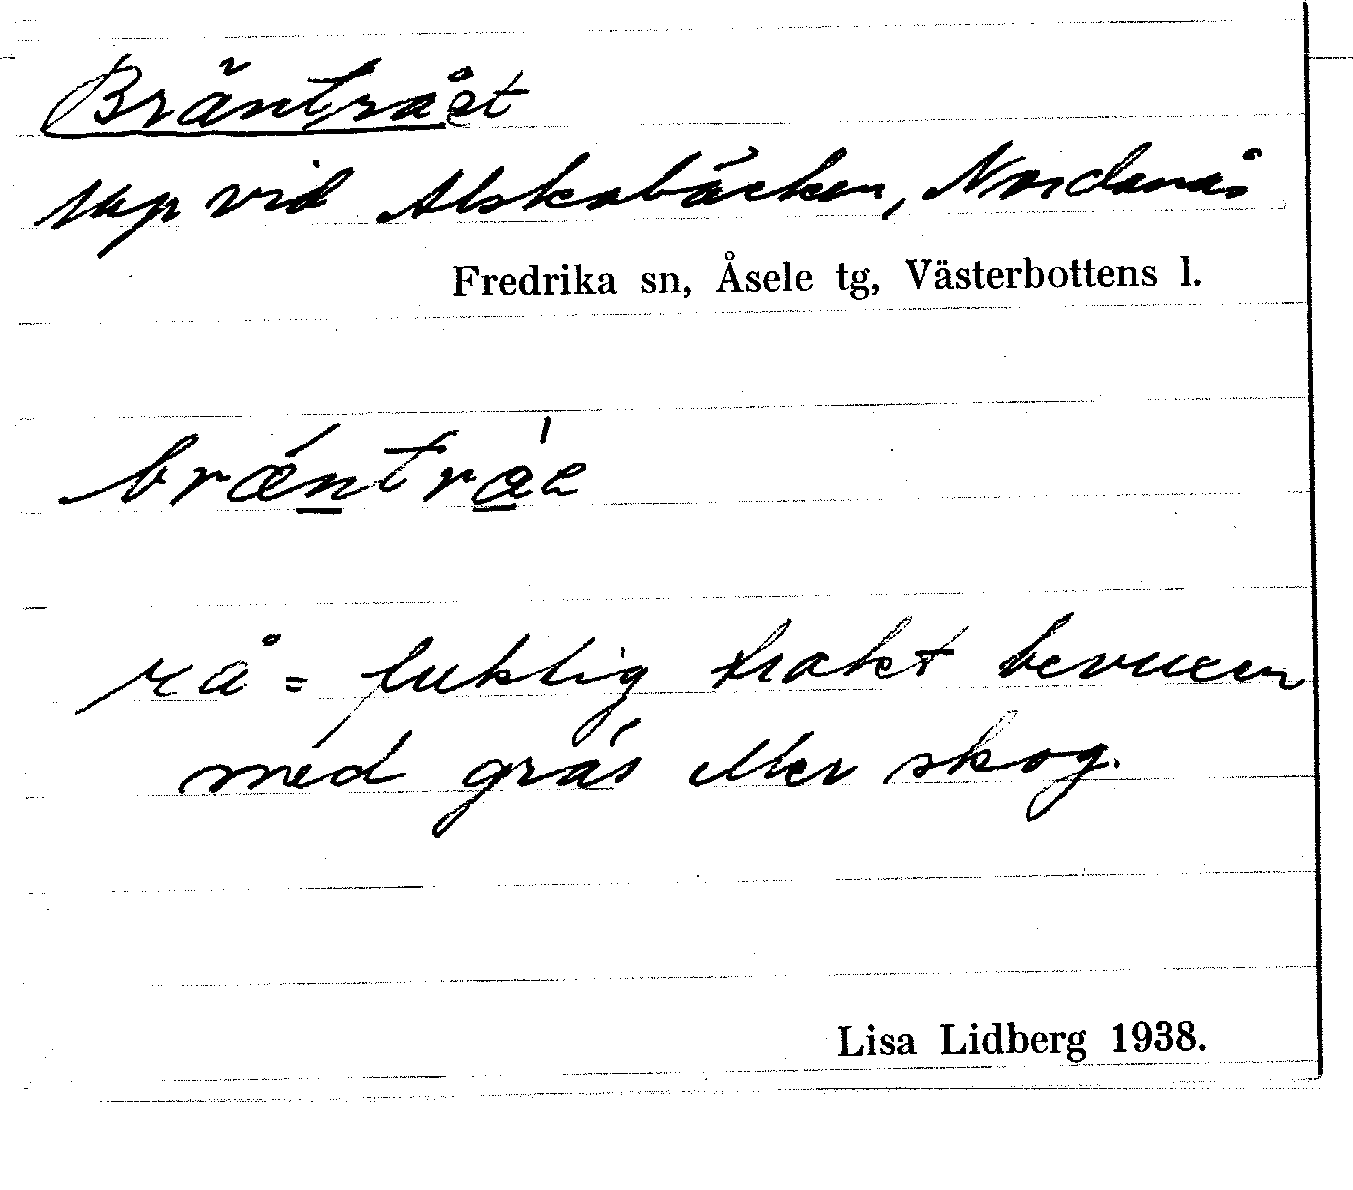 Bränträet
up vid Alskabäcken, Nordanås
Fredrika sn, Åsele tg, Västerbottens l.
brǽntráe
rå = fuktig trakt bevuxen
med gräs eller skog.
Lisa Lidberg 1938.